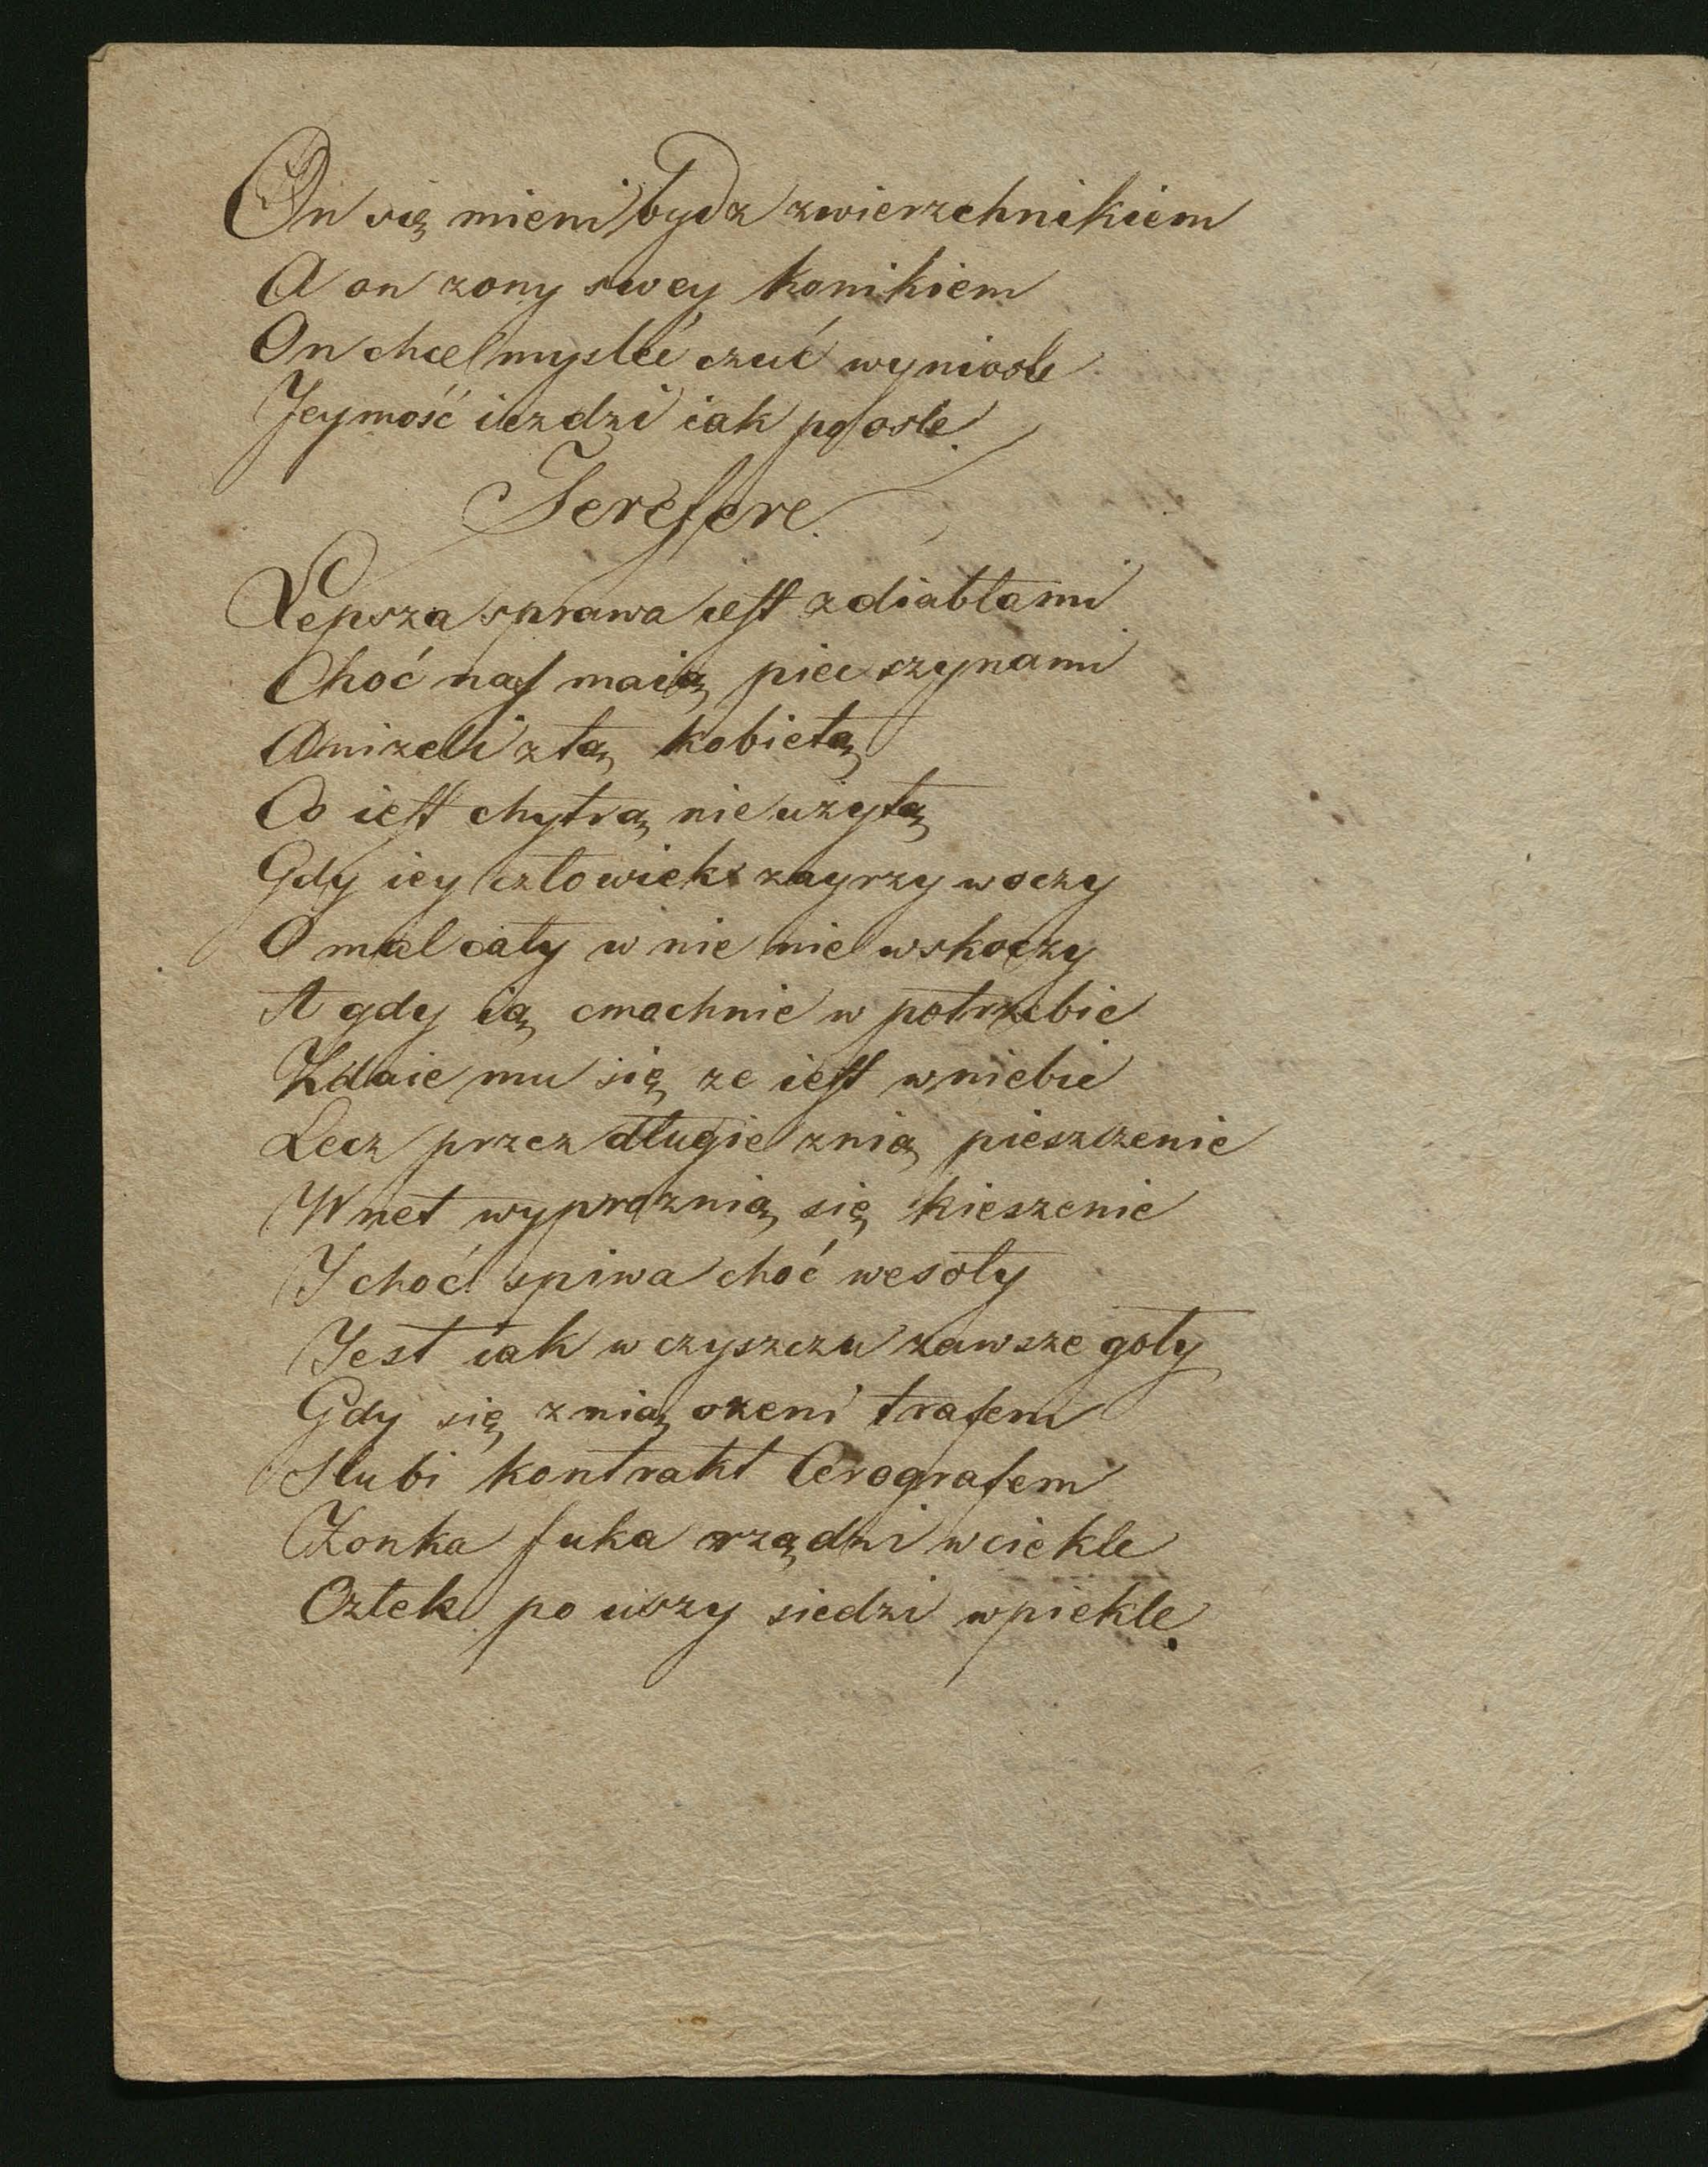 On się mieni bydz zwierzchnikiem
A on zony swey konikiem
On chce mysleć czuć wyniosle
Jeymość iezdzi iak po osle.
Terefere.
Lepsza sprawa iest z diabłami
Choć nas maią piec szynami
Anizeli złą kobietą
Co iest chytrą nieużytą
Gdy iey człowiek zayrzy w oczy
O mal cały w nie nie wskoczy
A gdy ią cmachnie w potrzebie
Zdaie mu się ze iest wniebie
Lecz przez długie znią pieszczenie
Wnet wyproznią się kieszenie
I choć spiwa choć wesoły
Jest iak w czyszczu zawsze goły
Gdy się znią ozeni trafem
Slubi kontrakt Cerografem
Zonka fuka rządzi wciekle
Człek po uszy siedzi wpiekle.